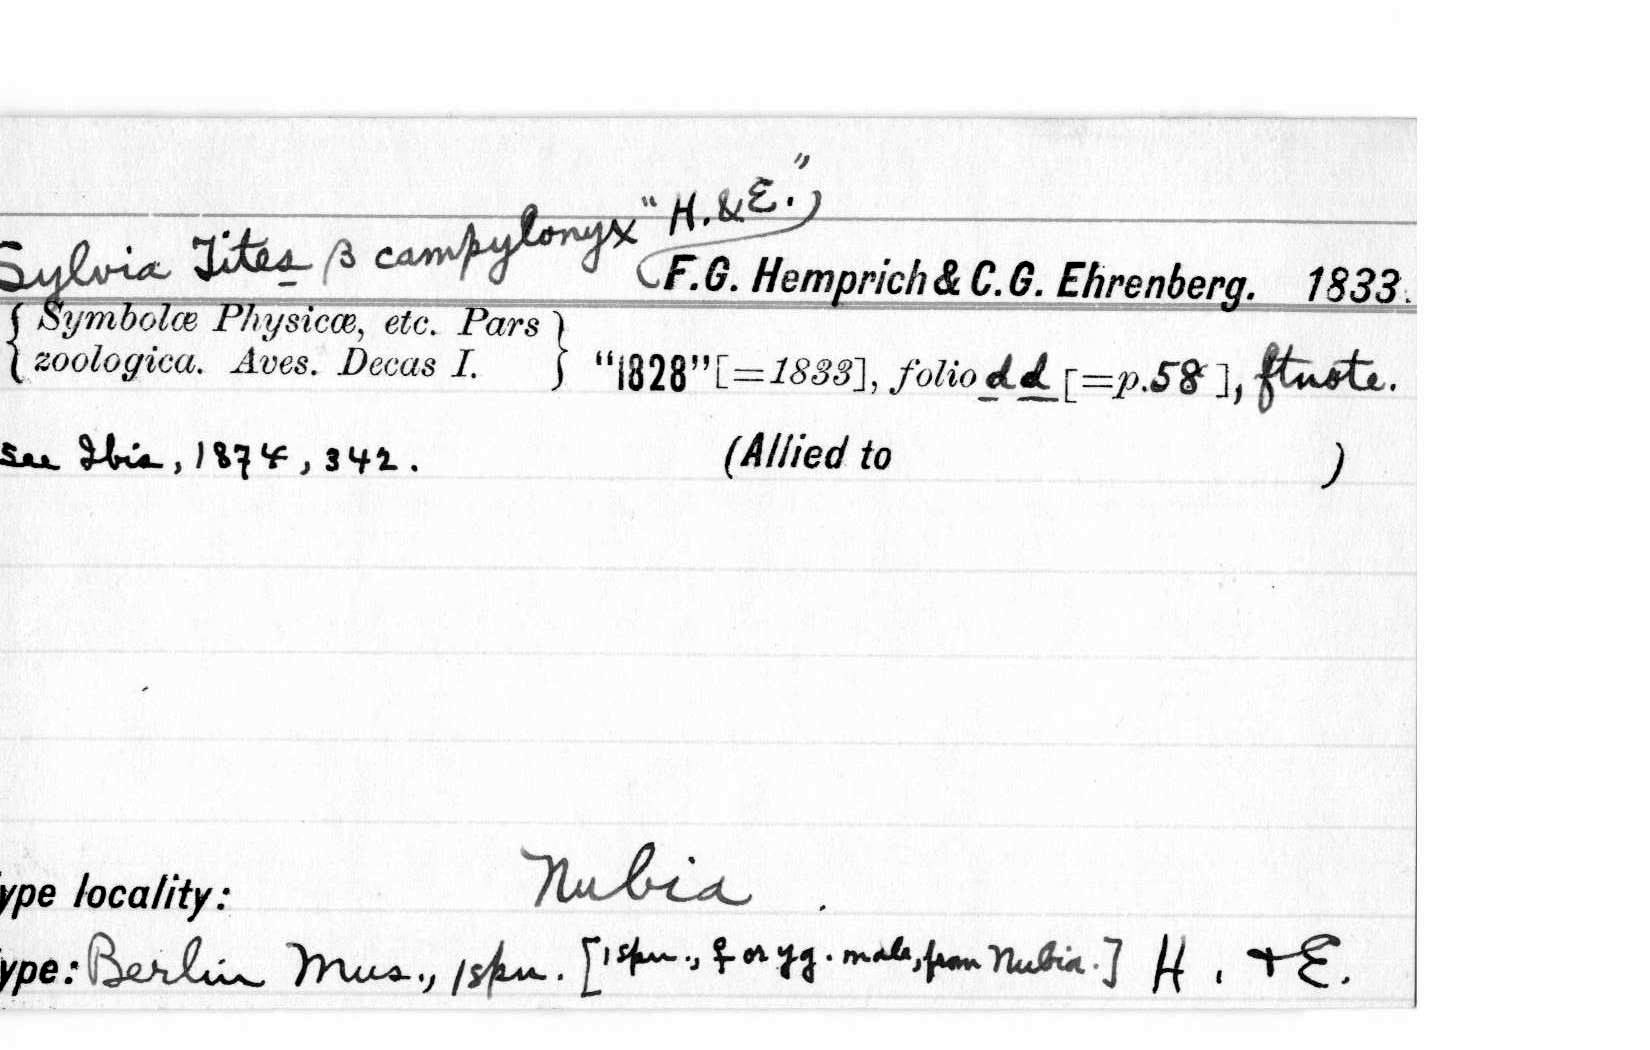 Sylvia Tites β campylonyx "H. & E."
F.G. Hemprich & C.G. Ehrenberg. 1833.
{Symbolæ Physicæ, etc. Pars zoologica. Aves. Decas I.} "1828" [=1833], folio d d [=p. 58], ftnote.
see Ibis, 1874, 342. (Allied to )
ype locality: Nubia.
ype: Berlin Mus., 1 spn. [1 spn., ♀ or yg. male, from Nubia.] H. & E.